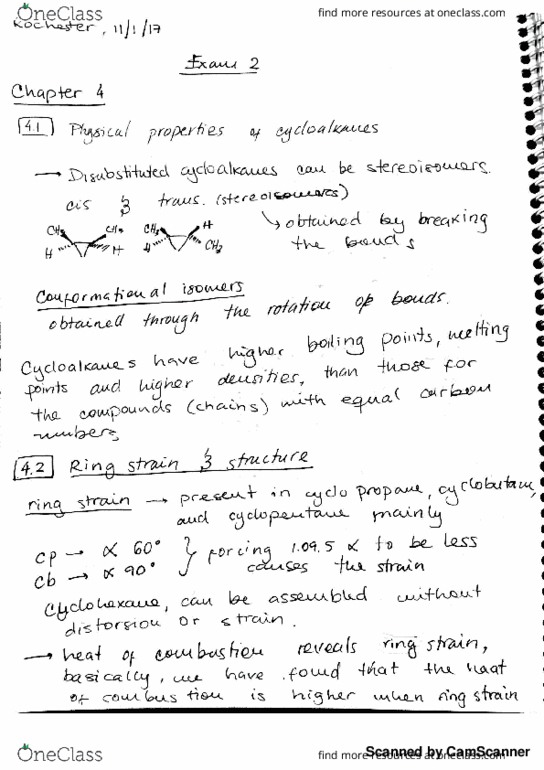 OneClass
find more resources at oneclass.com
Rochester, 11/1/17
Exam 2
Chapter 4
4.1 Physical properties of cycloalkanes
→ Disubstituted cycloalkanes can be stereoisomers.
cis & trans. (stereoisomers)
↳ obtained by breaking
the bonds
CH₃ CH₃ CH₃ H
H H H CH₃
Conformational isomers
obtained through the rotation of bonds.
Cycloalkanes have higher boiling points, melting
points and higher densities, than those for
the compounds (chains) with equal carbon
numbers
4.2 Ring strain & structure
ring strain → present in cyclo propane, cyclobutane,
and cyclopentane mainly
cp → ∝ 60° } forcing 109.5 ∝ to be less
cb → ∝ 90° causes the strain
Cyclohexane, can be assembled without
distorsion or strain.
→ heat of combustion reveals ring strain,
basically, we have found that the heat
of combustion is higher when ring strain
OneClass
find more resources at oneclass.com
Scanned by CamScanner